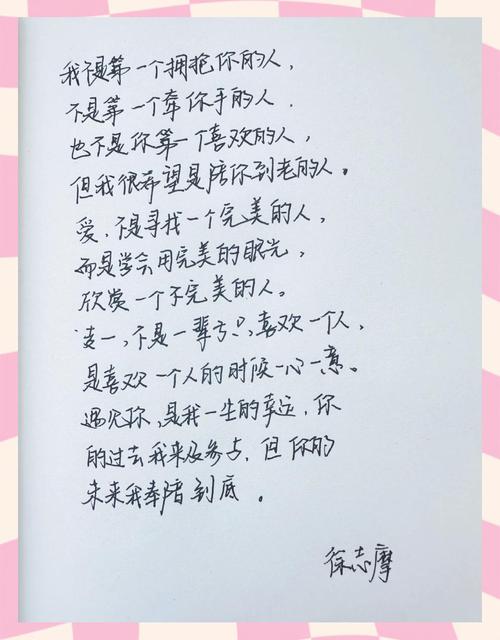 我不是第一个拥抱你的人，
不是第一个牵你手的人．
也不是你第一个喜欢的人，
但我很希望是陪你到老的人。
爱，不是寻找一个完美的人，
而是学会用完美的眼光，
欣赏一个不完美的人。
专一，不是一辈子只喜欢一个人，
是喜欢一个人的时候一心一意。
遇见你，是我一生的幸运，你
的过去我来没参与，但你的
未来我奉陪到底。
徐志摩